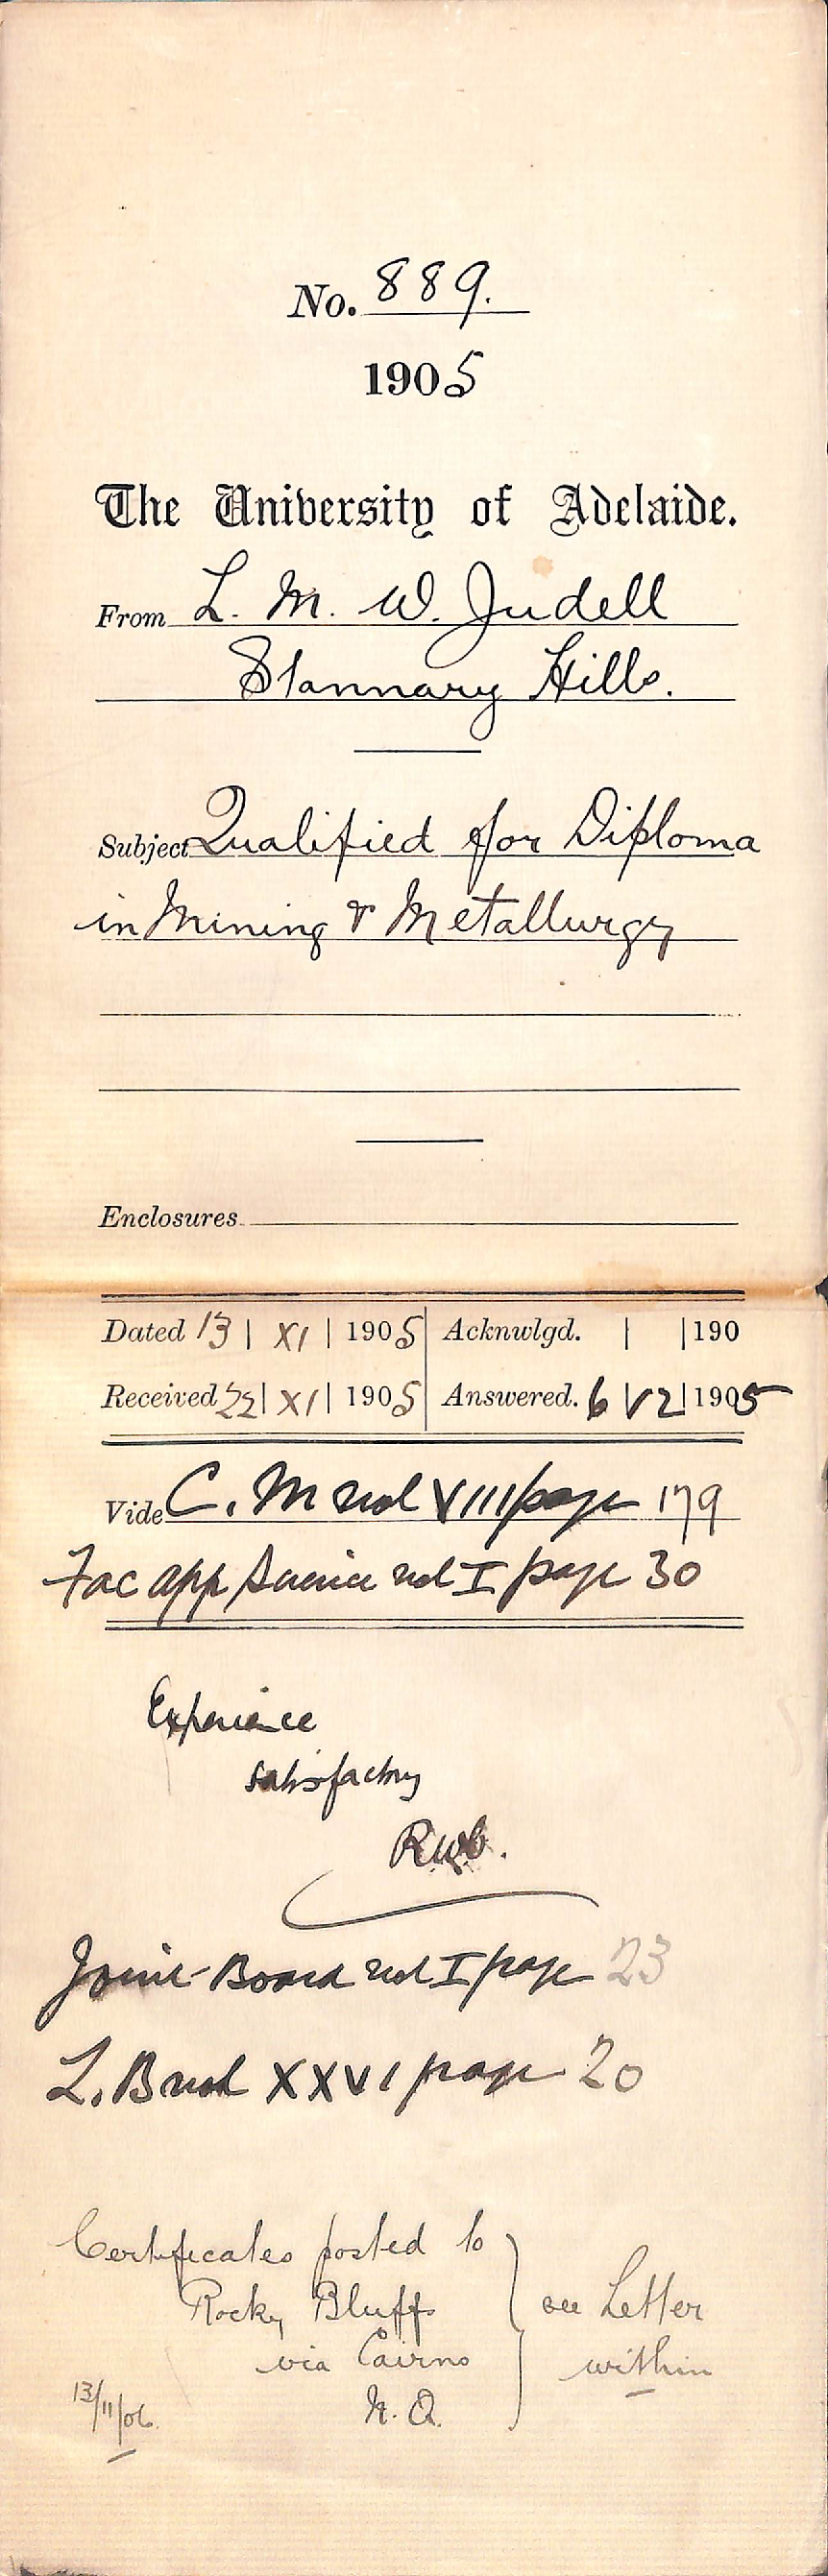 No. 889.
1905
The University of Adelaide.
From L. M. W. Judell
Stannary Hills.
Subject Qualified for Diploma
in Mining & Metallurgy
Enclosures
Dated 13 | XI | 1905 | Acknwlgd. | | 190
Received 22 | XI | 1905 | Answered. 6 | V2 | 1905
Vide C. M vol VIII page 179
Fac app Science vol I page 30
Experience
satisfactory
Joint Board vol I page 23
L. B vol XXVI page 20
Certificates posted to
Rocky Bluffs } see Letter
via Cairns within
13/11/06. N. Q.